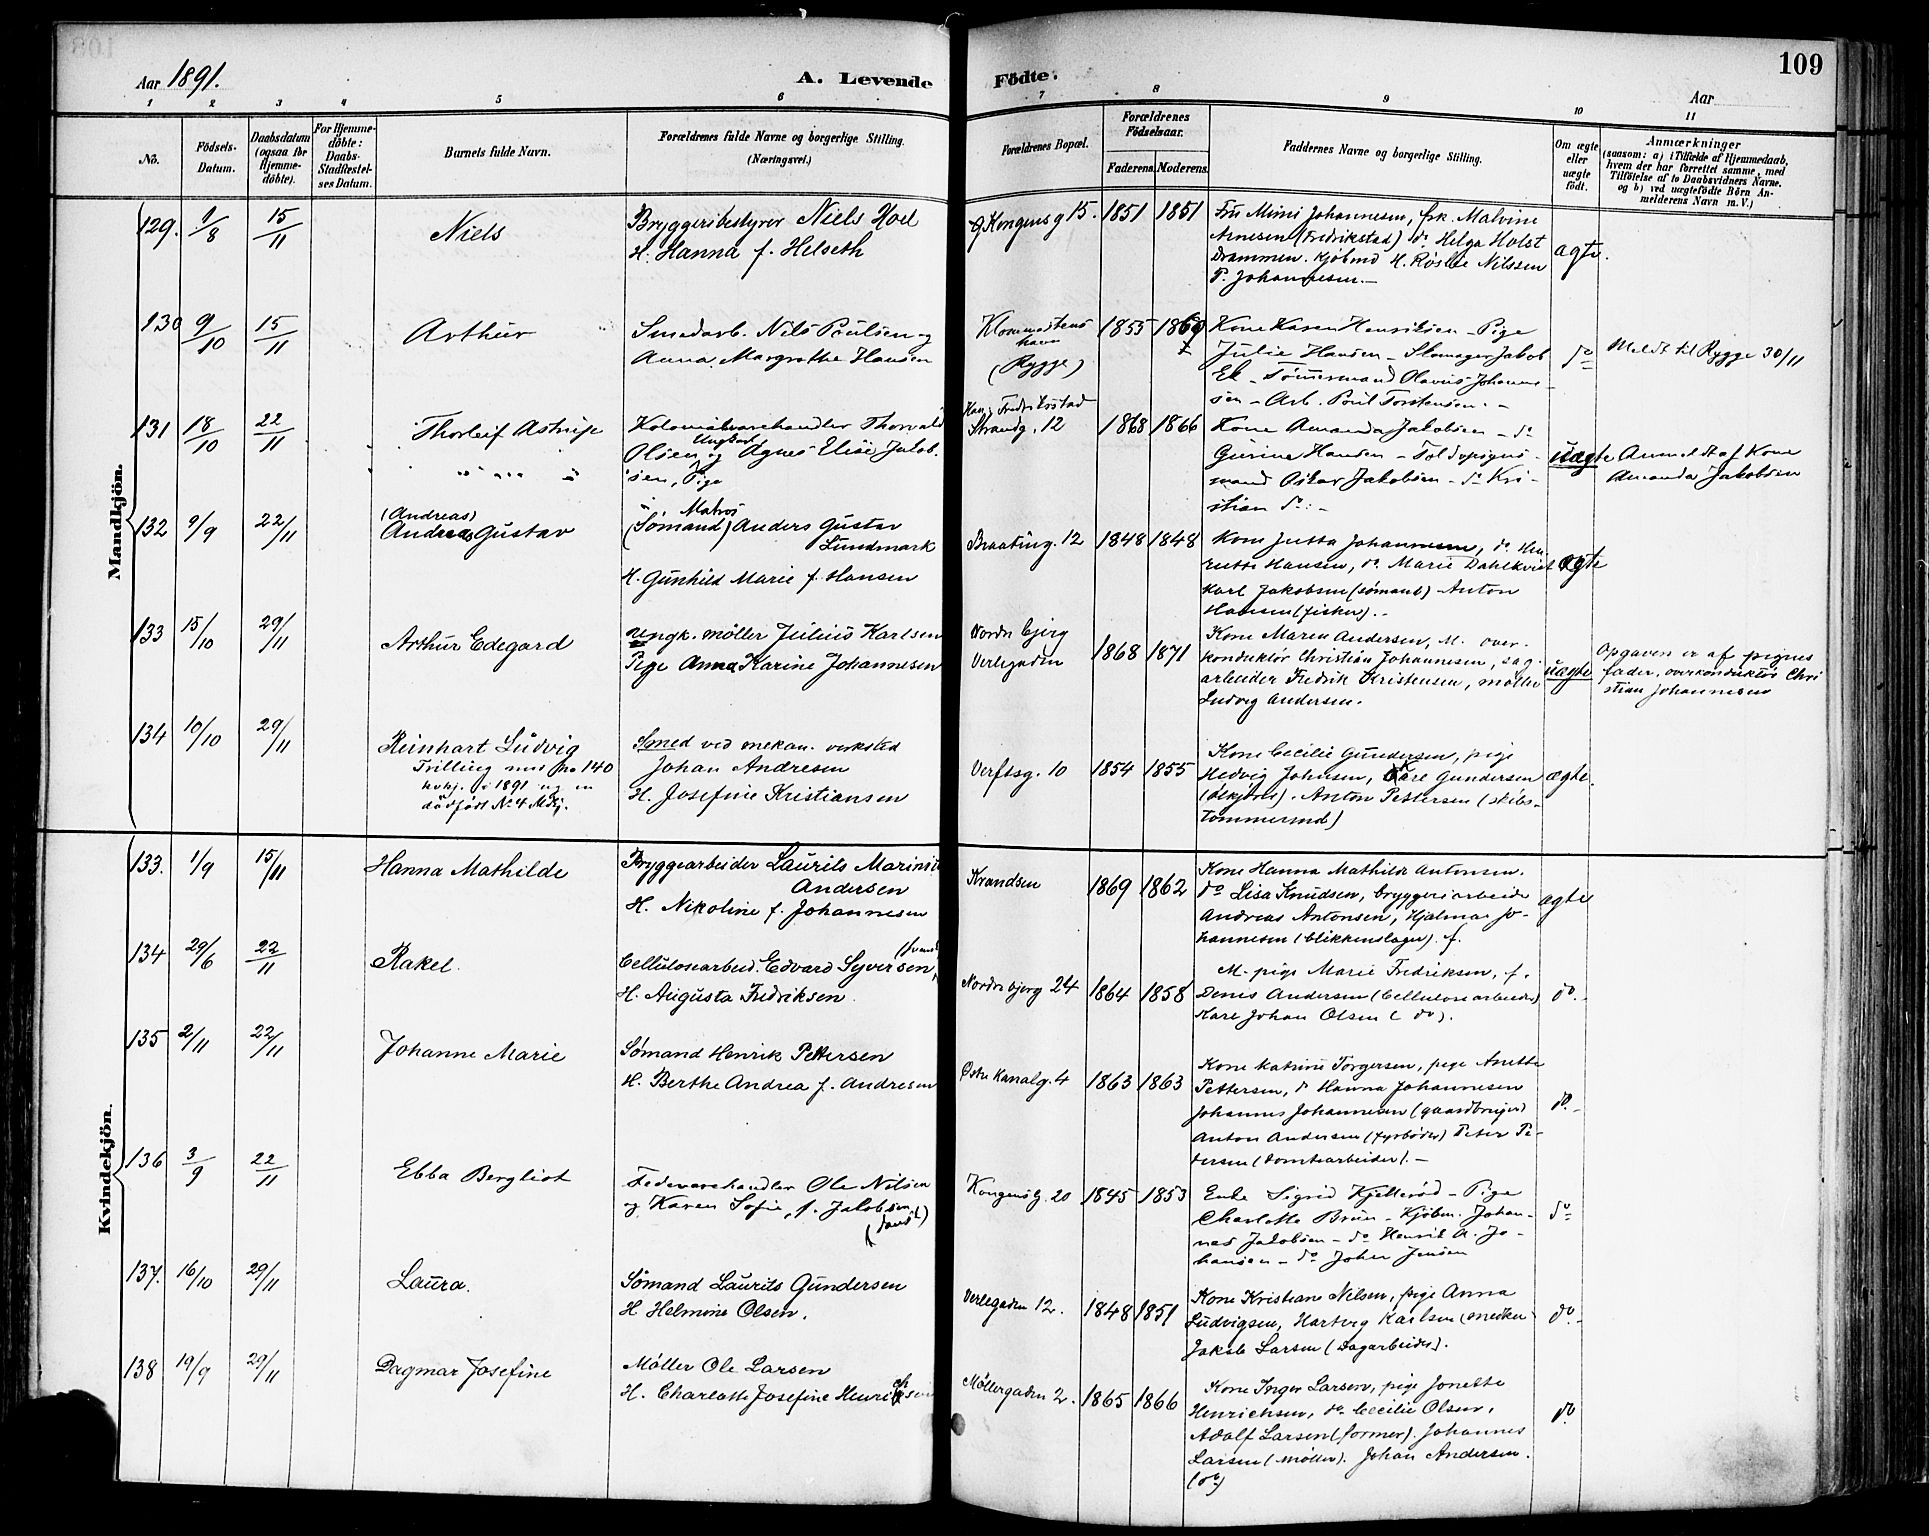 109
Aar 1891.
A. Levende Födte.
Aar
1 2 3 4 5 6 7 8 9 10 11
No.
Födsels-Datum.
Daabsdatum (ogsaa for Hjemmedöbte).
For Hjemmedöbte: Daabs-Stadfæstelses Datum.
Barnets fulde Navn.
Forældrenes fulde Navne og borgerlige Stilling.
(Næringsvei.)
Forældrenes Bopæl.
Forældrenes Födselsaar.
Faderens. Moderens.
Faddernes Navne og borgerlige Stilling.
Om ægte eller uægte födt.
Anmærkninger
(saasom: a) i Tilfælde af Hjemmedaab,
hvem der har forrettet samme, med
Tilföielse af to Daabsvidners Navne.
og b) ved uægtefödte Börn Anmelderens Navn m. V.)
Mandkjön.
129. 1/8 15/11 Niels
Bryggeribestyrer Niels Hoel
H. Hanna f. Helseth
G Kongensg 15. 1851 1851
Fru Mimi Johannesen, frk. Malvine
Arnesen (Fredrikstad) do Helga Holst
Drammen. Kjøbmd H. Nilssen
P. Johannesen.—
ægte.
130 9/10 15/11 Arthur
Smedarb. Nils Poulsen og
Anna Margrethe Hansen
havn
(Rygge)
1855 1869
Kone Karen Henriksen — Pige
Julie Hansen — Skomager Jakob
Ek — Tømmermand Olavus Johanne-
sen — Arb. Poul Torstensen. —
do
Meldt til Rygge 30/11
131 18/10 22/11 Thorleif Astrup
Kolonialvarehandler Thorvald
Olsen Ungkarl og Agnes Elise Jakob-
sen, Pige
Han: Fredriksstad
Strandg. 12 1868 1866
Kone Amanda Jakobsen — do
Gurine Hansen — Toldopsyns-
mand Oskar Jakobsen — do Kri-
stian do: —
uægte
Anmeldt af Kone
Amanda Jakobsen
132 9/9 22/11 (Andreas)
Andreas Gustav
Matros
(Sømand) Anders Gustav
Lundmark
H. Gunhild Marie f. Hansen
Braateng. 12 1848 1848
Kone Jutta Johannesen, do Hen-
riette Hansen, do Marie Dahlkvist
Karl Jakobsen (sømand) Anton
Hansen (fisker). —
ægte
133 15/10 29/11 Arthur Edegard
ungk. møller Julius Karlsen
Pige Anna Karine Johannesen
Nordre bjerg
Verlegaden 1868 1871
Kone Maren Andersen, M. over-
konduktør Christian Johannesen, sag-
arbeider Fredrik Kristensen, møller
Ludvig Andersen.
uægte
Opgaven er af pigens
fader, overkonduktør Chri
stian Johannesen
134 10/10 29/11 Reinhart Ludvig
Trilling med No 140
kvkj. i 1891 og en
dødfødt No 4 Mdkj.
Smed ved mekan. verksted
Johan Andresen
H. Josefine Kristiansen
Verftsg. 10 1854 1855
Kone Cecilie Gundersen, pige
Hedvig Johnsen, Kare Gundersen
Anton Pettersen (skibs-
tømmermd)
ægte.
Kvindekjön.
133. 1/9 15/11 Hanna Mathilde
Bryggearbeider Laurits Marinius
Andersen
H. Nikoline f. Johannesen
Krandsen 1869 1862
Kone Hanna Mathilde Antonsen.
do Lisa Knudsen, bryggeriarbeide
Andreas Antonsen, Hjalmar Jo-
hannesen (blikkenslager). f.
ægte
134 29/6 22/11 Rakel.
Cellulosearbeid. Edvard Syversen
H. Augusta Fredriksen.
Nordre bjerg 24 1864 1858
M. pige Marie Fredriksen, f.
Denis Andersen (Cellulosearbeider)
Kare Johan Olsen (do).
do. —
135 2/11 22/11 Johanne Marie
Sømand Henrik Pettersen
H. Berthe Andrea f. Andresen
Østre Kanalg. 4 1863 1863
Kone Katrine Torgersen, pige Anette
Pettersen, do Hanna Johannesen
Johannes Johannesen (gaardbruger)
Anton Andersen (fyrbøder) Peter Pe-
dersen (tomtearbeider). —
do. —
136 3/9 22/11 Ebba Bergliot
Fedevarehandler Ole Nilsen
og Karen Sofie, f. Jakobsen
Kongensg. 20 1845 1853
Enke Sigrid Kjellerød — Pige
Charlotte Bruun — Kjøbm. Johan-
nes Jakobsen — do Henrik A. Jo-
hansen — do Johan Jensen
do
137. 16/10 29/11 Laura.
Sømand Laurits Gundersen
H. Helmine Olsen.
Verlegaden 12. 1848 1851
Kone Kristiane Nilsen, pige Anna
Ludvigsen, Hartvig Karlsen (snedker)
Jakob Larsen (Dagarbeider).
do. —
138 19/9 29/11 Dagmar Josefine
Møller Ole Larsen
H. Charlotte Josefine Henrichsen
Møllergaden 2. 1865 1866
Kone Inger Larsen, pige Jonette
Henrichsen, do Cecilie Olsen,
Adolf Larsen (former). Johannes
Larsen (møller). Johan Andersen.
(do)
do.